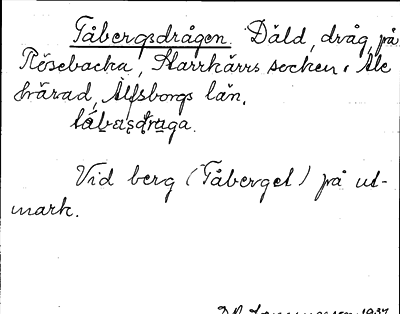 Tåbergsdrågen. Däld, dråg, på
Rösebacka, Starrkärrs socken, Ale
härad, Älfsborgs län.
Vid berg (Tåberget) på ut-
mark.
1937